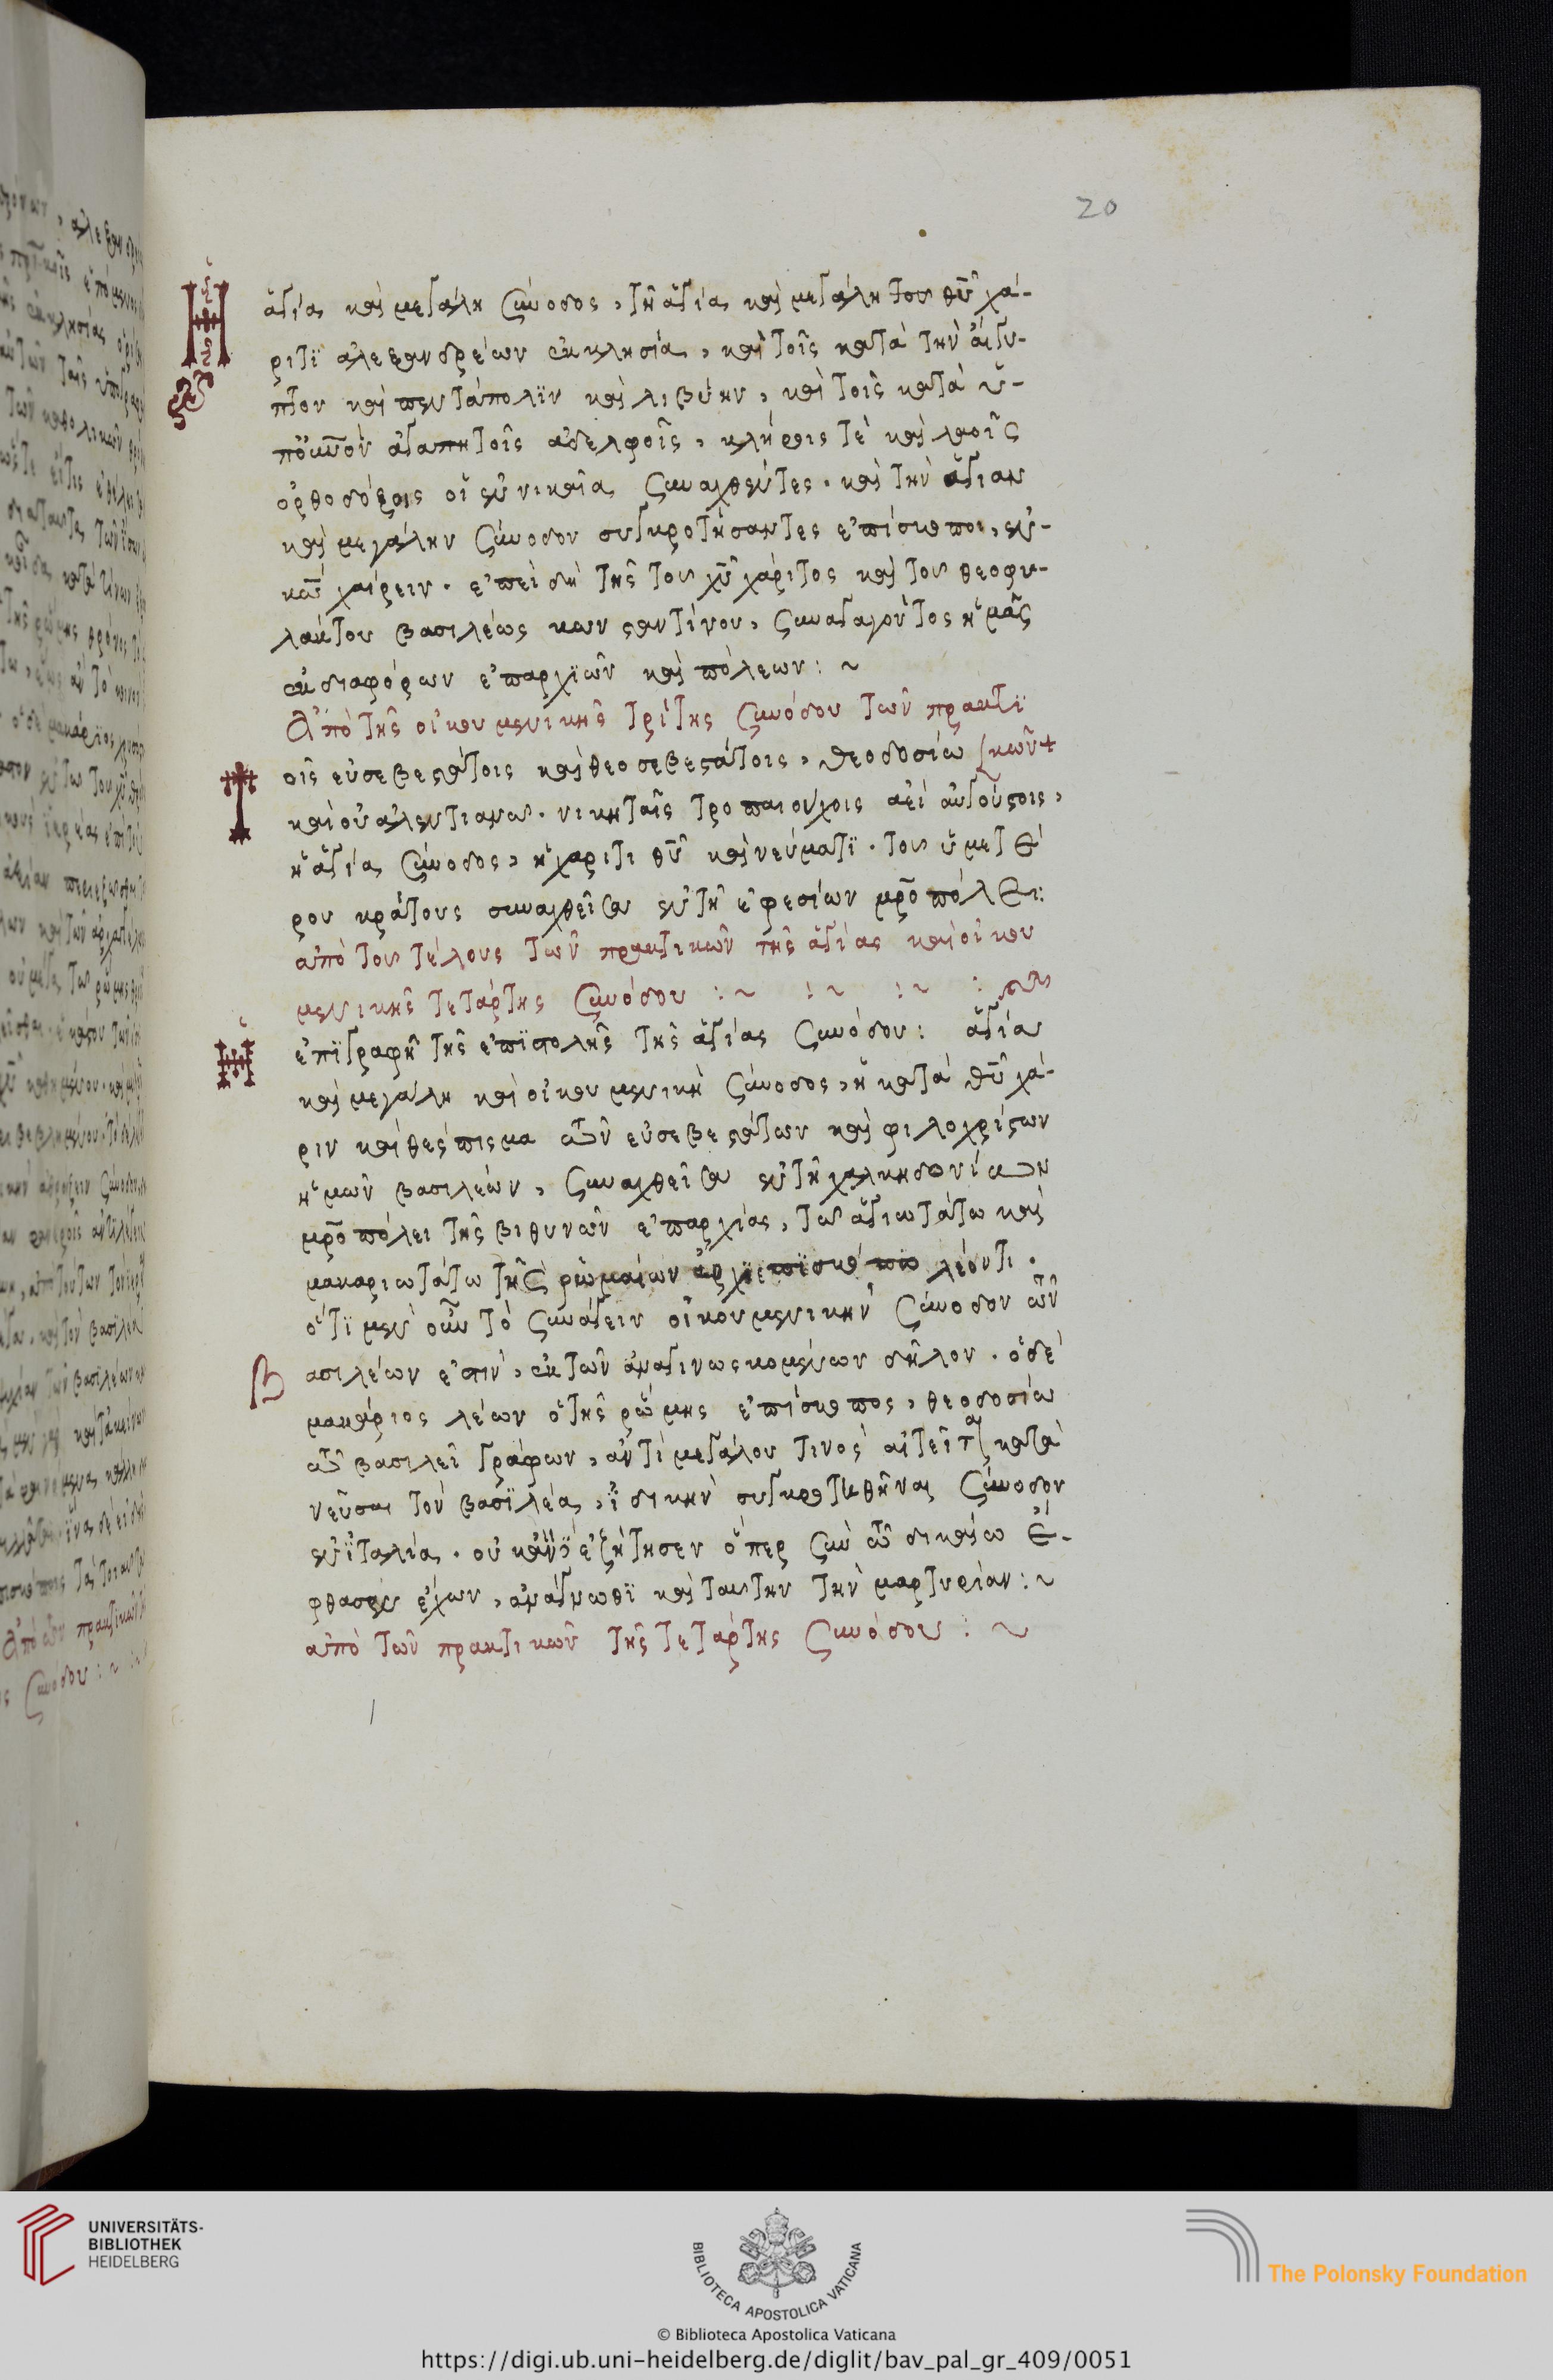 20
Ἡ ἁγία καὶ μεγάλη σύνοδος, τῆ ἁγία καὶ μεγάλη τοῦ θῦ χά-
ριτϊ ἀλεξανδρέων ἐκκλησία, καὶ τοῖς κατὰ τὴν ἀίγυ-
πτον καὶ πεντάπολϊν καὶ λιβύην, καὶ τοῖς κατὰ ὑ-
ἀγαπητοῖς ἀδελφοῖς, κλήροις τὲ καὶ λαοῖς
ὀρθοδόξοις οἱ ἐν νικαία συναχθέντες. καὶ τὴν ἁγίαν
καὶ μεγάλην σύνοδον συγκροτήσαντες ἐπίσκοποι, ἐν
κῶ χαίρειν. ἐπειδὴ τῆς τοῦ χῦ χάριτος καὶ τοῦ θεοφυ-
λάκτου βασιλέως κωνσταντίνου, συναγαγόντος ἡμᾶς
ἐκ διαφόρων ἐπαρχϊῶν καὶ πόλεων: ~
Ἀπὸ τῆς οἰκουμενικῆς τρίτης συνόδου τῶν πρακτϊ
Τοῖς εὐσεβεστάτοις καὶ θεοσεβεστάτοις, θεοδοσίω (κῶν+
καὶ οὐαλεντιανῶ. νικηταῖς τροπαιούχοις ἀεὶ αὐγούστοις,
ἡ ἁγία σύνοδος, ἡ χάριτι θῦ καὶ νεύματϊ. τοῦ ὑμετέ
ρου κράτους συναχθεῖσα ἐν τῆ ἐφεσίων μρο πόλει:
ἀπὸ τοῦ τέλους τῶν πρακτικῶν τῆς ἁγίας καὶ οἰκου
μενικῆς τετάρτης συνόδου : ~ : ~ : ~ : ~
ἐπϊγραφὴ τῆς ἐπϊστολῆς τῆς ἁγίας συνόδου: Ἡ ἁγία
καὶ μεγάλη καὶ οἰκουμενικὴ σύνοδος, ἡ κατὰ θῦ χά-
ριν καὶ θέσπισμα τῶν εὐσεβεστάτων καὶ φιλοχρίστων
ἡμῶν βασιλέων, συναχθεῖσα ἐν τῆ χαλκηδονίων
μρο πόλει τῆς βιθυνῶν ἐπαρχίας, τῶ ἁγιωτάτω καὶ
μακαριωτάτω τῆς ῥωμαίων ἀρχϊεπϊσκόπω λέοντι.
ὅτϊ μὲν οὖν τὸ συνάγειν οἰκουμενικὴν σύνοδον τῶν
Βασιλέων ἐστὶν, ἐκ τῶν ἀναγινωσκομένων δῆλον. ὁ δὲ
μακάριος λέων ὁ τῆς ῥώμης ἐπίσκοπος, θεοδοσίω
τῶ βασιλεῖ γράφων, ἀντὶ μεγάλου τινὸς αἰτεῖται κατα
νεῦσαι τὸν βασϊλέα, ἰδικὴν συγκροτηθῆναι σύνοδον
ἐν ἰταλία. οὐκ ἂν ἐξήτησεν ὅπερ σὺν τῶ δικαίω ἔ-
φθασεν ἔχων, ἀνάγνωθϊ καὶ ταύτην τὴν μαρτυρίαν: ~
ἀπὸ τῶν πρακτικῶν τῆς τετάρτης συνόδου : ~
UNIVERSITÄTS-
BIBLIOTHEK
HEIDELBERG
BIBLIOTECA APOSTOLICA VATICANA
The Polonsky Foundation
© Biblioteca Apostolica Vaticana
https://digi.ub.uni-heidelberg.de/diglit/bav_pal_gr_409/0051